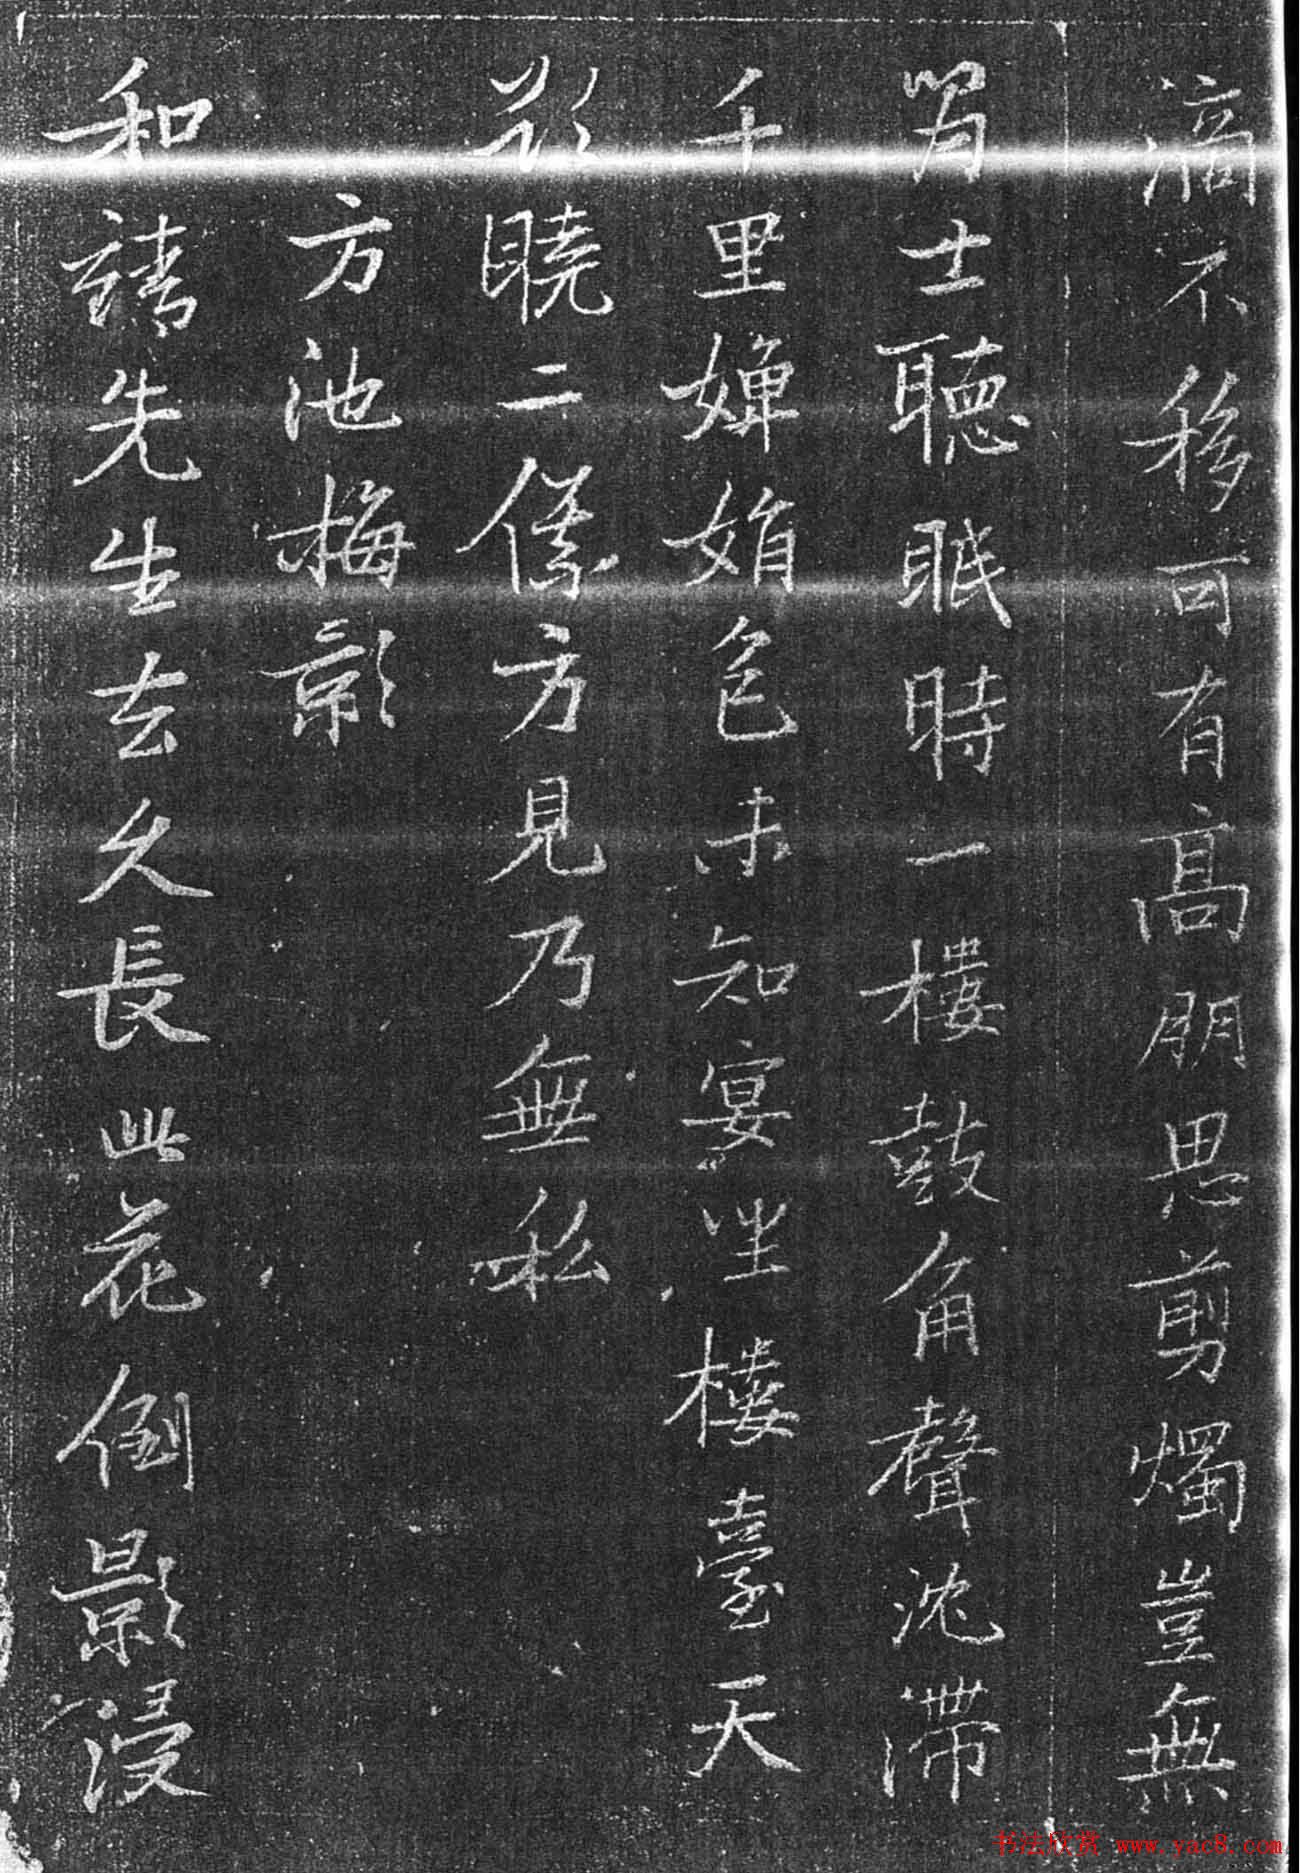 滴不移可有高朋思剪燭豈無
士聽眠時一樓鼓角聲沈滯
千里嬋娟色未知宴坐樓臺天
欲曉二儀方見乃無私
方池梅影
和靖先生去久長此花倒影浸
书法欣赏 www.yac8.com